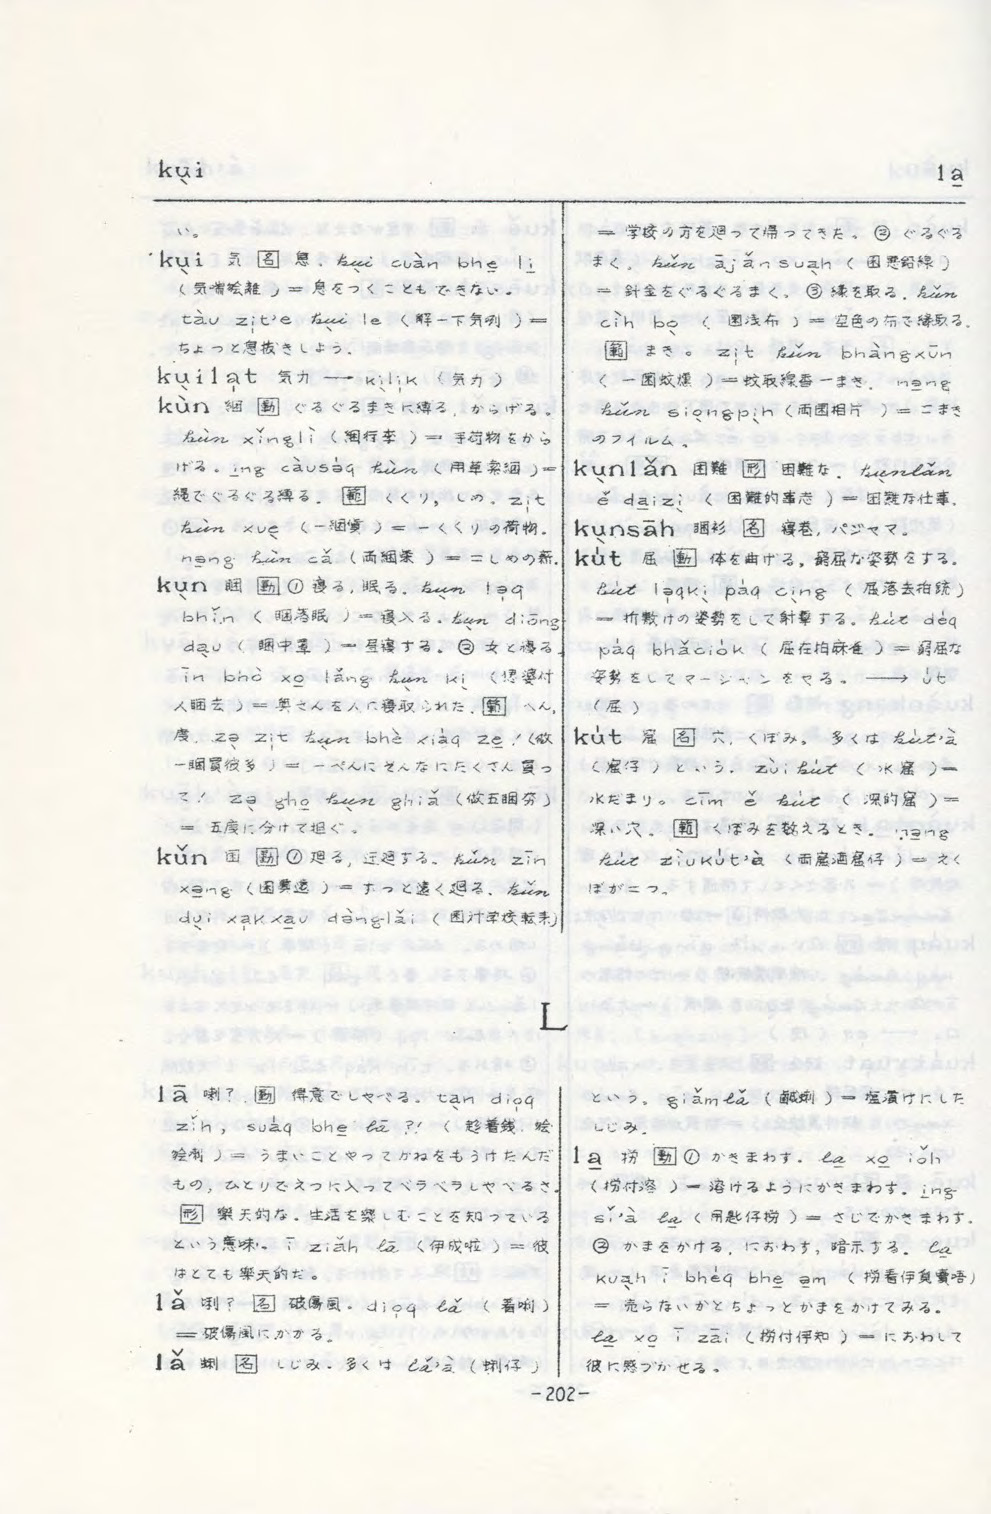 kụi
la̱
い。
kụi 気 [名] 息 kụi cuàn bhe̱ lị
(気喘絵離)=息をつくこともできない。
tàu zịt'e kụi le (解一下気咧)=
ちょっと息抜きしよう.
kụilạt 気力 ─→ kịlịk (気力)
kùn 綑 [動] ぐるぐるまきに縛る,からげる。
kùn xǐnglì (綑行李)=手荷物をから
げる。i̱ng càusàq kùn (用草索綑)=
縄でぐるぐる縛る. [範] くくり,しめ. zịt
kùn xuè (一綑貨)=一くくりの荷物.
nạng kùn cǎ (両綑柴)=二しめの薪.
kụn 睏 [動] ① 寝る,眠る. kụn lạq
bhǐn (睏落眠)=寝入る。kụn diōng
dạu (睏中罩)=昼寝する。② 女と寝る.
īn bhò xọ lǎng kụn kị (𪜶婆付
人睏去)=奥さんを人に寝取られた. [範] へん,
度. zạ zịt kụn bhè xiàq zē! (做
一睏買彼多)=一ぺんにそんなにたくさん買っ
て! zạ ghọ kụn ghiǎ (做五睏夯)
=五度に分けて担ぐ。
kǔn 囷 [動] ① 廻る,迂廻する. kǔn zīn
xạng (囷真遠)=ずっと遠く廻る. kǔn
dụi xạkxạu dànglǎi (囷対学校転来)
=学校の方を廻って帰ってきた。② ぐるぐる
まく. kǔn ājǎnsuạh (囷亜鉛線)
=針金をぐるぐるまく。③ 縁を取る. kǔn
cìh bọ (囷浅布)=空色の布で縁取る.
[範] まき。 zịt kǔn bhàngxūn
(一囷蚊燻)=蚊取線香一まき. nạng
kǔn siọngpịh (両囷相片)=二まき
のフイルム。
kụnlǎn 困難 [形] 困難な. kụnlǎn
ě dạizị (困難的事志)=困難な仕事.
kụnsāh 睏衫 [名] 寝巻,パジャマ。
kút 屈 [動] 体を曲げる,窮屈な姿勢をする.
kút lạqkị pàq cìng (屈落去拍銃)
=折敷けの姿勢をして射撃する. kút dẹ̀q
pàq bhǎciòk (屈在拍麻雀)=窮屈な
姿勢をしてマージャンをやる。─→ út
(屈)
kút 窟 [名] 穴,くぼみ。多くは kút'à
(窟仔)という. zùi kút (水窟)=
水たまり。cīm ě kút (深的窟)=
深い穴. [範] くぼみを数えるとき. nạng
kút ziùkút'à (両窟酒窟仔)=えく
ぼが二つ。
L
lā 喇? [動] 得意でしゃべる. tạn diọq
zǐh, suàq bhe̱ lā?! (趁着銭,煞
絵喇)=うまいことやってかねをもうけたんだ
もの,ひとりでえつに入ってペラペラしゃべるさ.
[形] 樂天的な.生活を楽しむことを知っている
という意味. ī ziǎh lā (伊成啦)=彼
はとても樂天的だ。
lǎ 喇? [名] 破傷風. diọq lǎ (着喇)
=破傷風にかかる。
lǎ 蜊 [名] しじみ.多くは lǎ'à (蜊仔)
という。giǎmlǎ (鹹蜊)=塩漬けにした
しじみ.
la̱ 撈 [動] ① かきまわす. la̱ xọ iǒh
(撈付溶)=溶けるようにかきまわす. i̱ng
sǐ'à la̱ (用匙仔撈)=さじでかきまわす.
② かまをかける,におわす,暗示する. la̱
kuạh ī bhèq bhe̱ ạm (撈看伊負賣唔)
=売らないかとちょっとかまをかけてみる。
la̱ xọ ī zāi (撈付伊知)=におわして
彼に感づかせる。
-202-